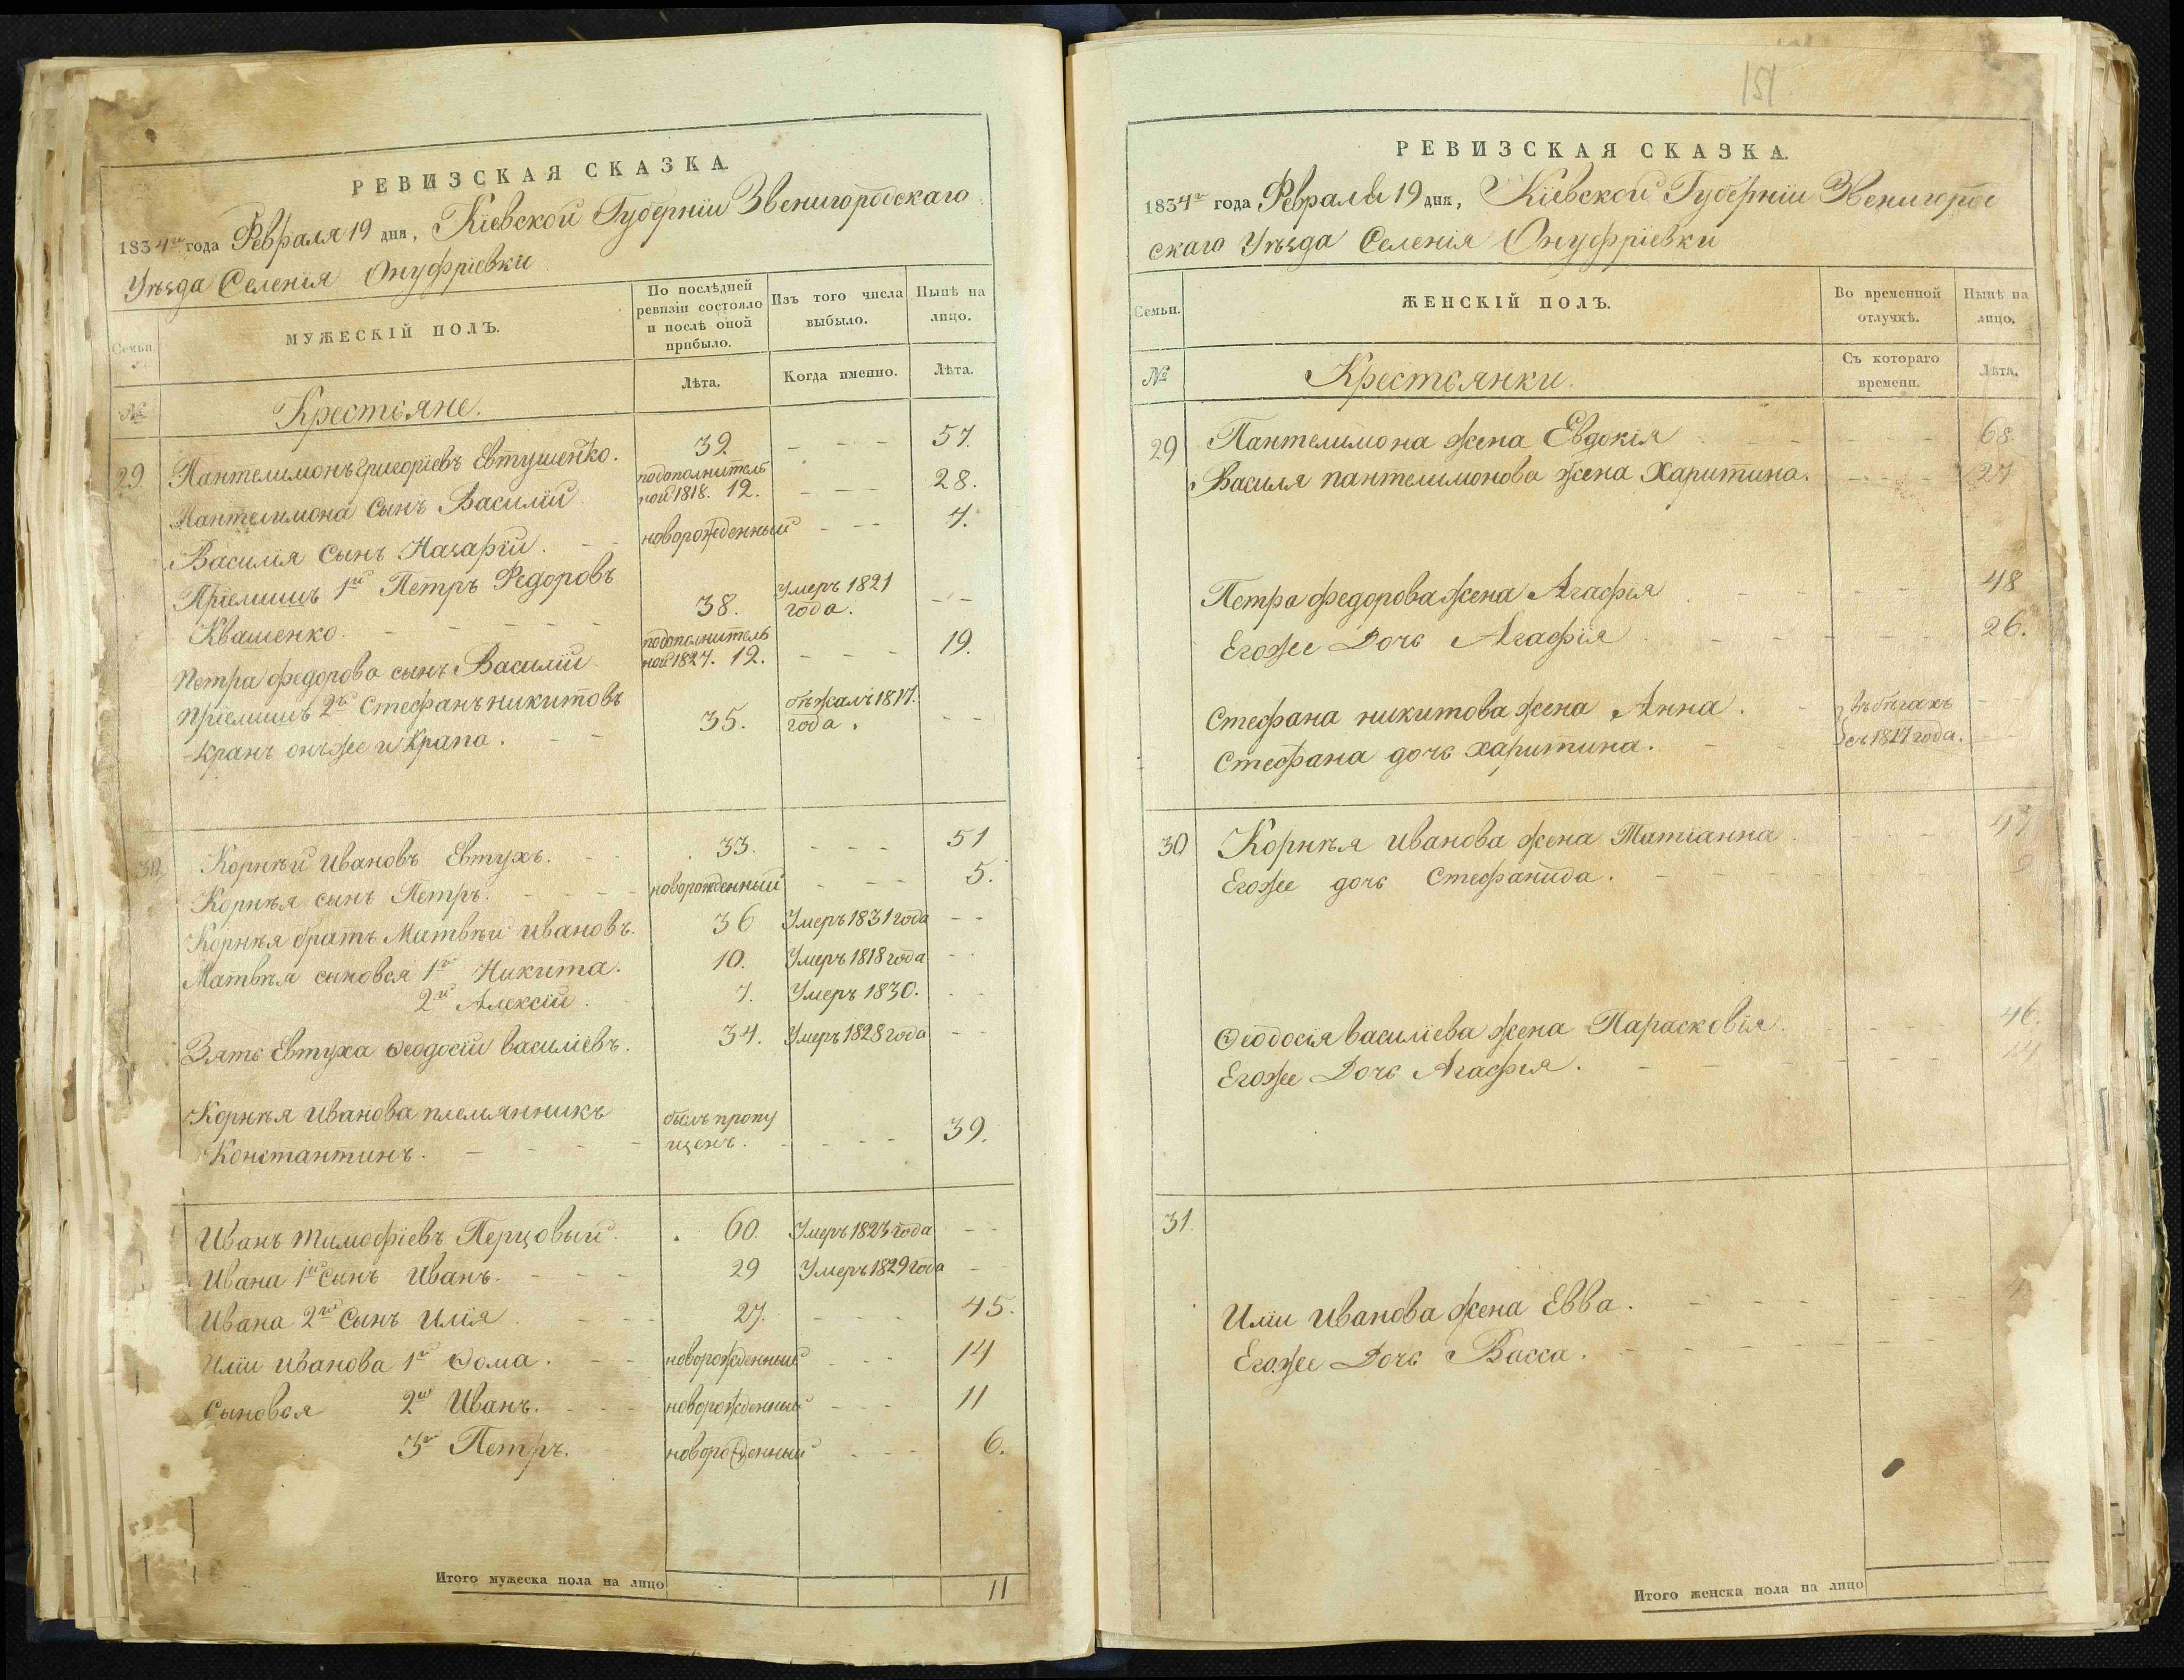 РЕВИЗСКАЯ СКАЗКА.
1834го года Февраля 19 дня, Кіевской Губерніи Звенигородскаго
Уѣзда Селенія Онуфріевки
Семьи.
МУЖЕСКІЙ ПОЛЪ.
По послѣдней ревизіи состояло и послѣ оной прибыло.
Изъ того числа выбыло.
Нынѣ на лицо.
№
Крестьяне.
Лѣта.
Когда именно.
Лѣта.
29 Пантелимонъ григоріевъ Евтушенко. 39. - - - 57.
Пантелимона Сынъ Василій подополнительной 1818. 12. - - - 28.
Василія Сынъ Назарій. - - новорожденный - - - 4.
Пріемишъ 1й Петръ Федоровъ
Квашенко. - - - - - 38. Умеръ 1821 года. - -
Петра федорова сынъ Василій подополнительной 1827. 12. - - - 19.
Пріемишъ 2й Стефанъ никитовъ
Кранъ онъже и Крапа. - - 35. бѣжалъ 1817. года. - -
30 Корнѣй Ивановъ Евтухъ. - - 33. - - - 51
Корнѣя сынъ Петръ. - - - - новорожденный - - - 5.
Корнѣя братъ Матвѣй ивановъ. 36 Умеръ 1831 года - -
Матвѣя сыновья 1й Никита. 10. Умеръ 1818 года - -
2й Алексій. 7. Умеръ 1830. - -
Зять Евтуха Ѳеодосій василіевъ. 34. Умеръ 1828 года - -
Корнѣя иванова племянникъ
Константинъ. - - - - былъ пропущенъ. - - - - 39.
Иванъ тимофіевъ Перцовый. 60. Умеръ 1823 года - -
Ивана 1й Сынъ Иванъ. - - - 29 Умеръ 1829 года - -
Ивана 2й Сынъ Илія. - - - 27. - - - 45.
Иліи иванова 1й Ѳома. - - новорожденный - - - 14
Сыновья 2й Иванъ. - - - новорожденный - - - 11
3й Петръ. новорожденный - - - 6.
Итого мужеска пола на лицо 11
151
РЕВИЗСКАЯ СКАЗКА.
1834го года Февраля 19 дня, Кіевской Губерніи Звенигород
скаго Уѣзда Селенія Онуфріевки
Семьи.
ЖЕНСКІЙ ПОЛЪ.
Во временной отлучкѣ.
Нынѣ на лицо.
№
Крестьянки.
Съ котораго времени.
Лѣта.
29 Пантелимона жена Евдокія - - - - 68.
Василя пантелимонова жена Харитина. - - - 27
Петра федорова жена Агафія - - - - 48
Егоже Дочь Агафія - - - - 26.
Стефана никитова жена Анна. - въ бѣгахъ - -
Стефана дочь харитина. - - съ 1817 года. - -
30 Корнѣя иванова жена Татіанна. - - - 47
Егоже дочь Стефанида. - - - - 9
Ѳеодосія василіева жена Парасковія. - - - 46.
Егоже Дочь Агафія. - - - -
31.
Иліи иванова жена Евва. - - - -
Егоже Дочь Васса. - - - -
Итого женска пола на лицо